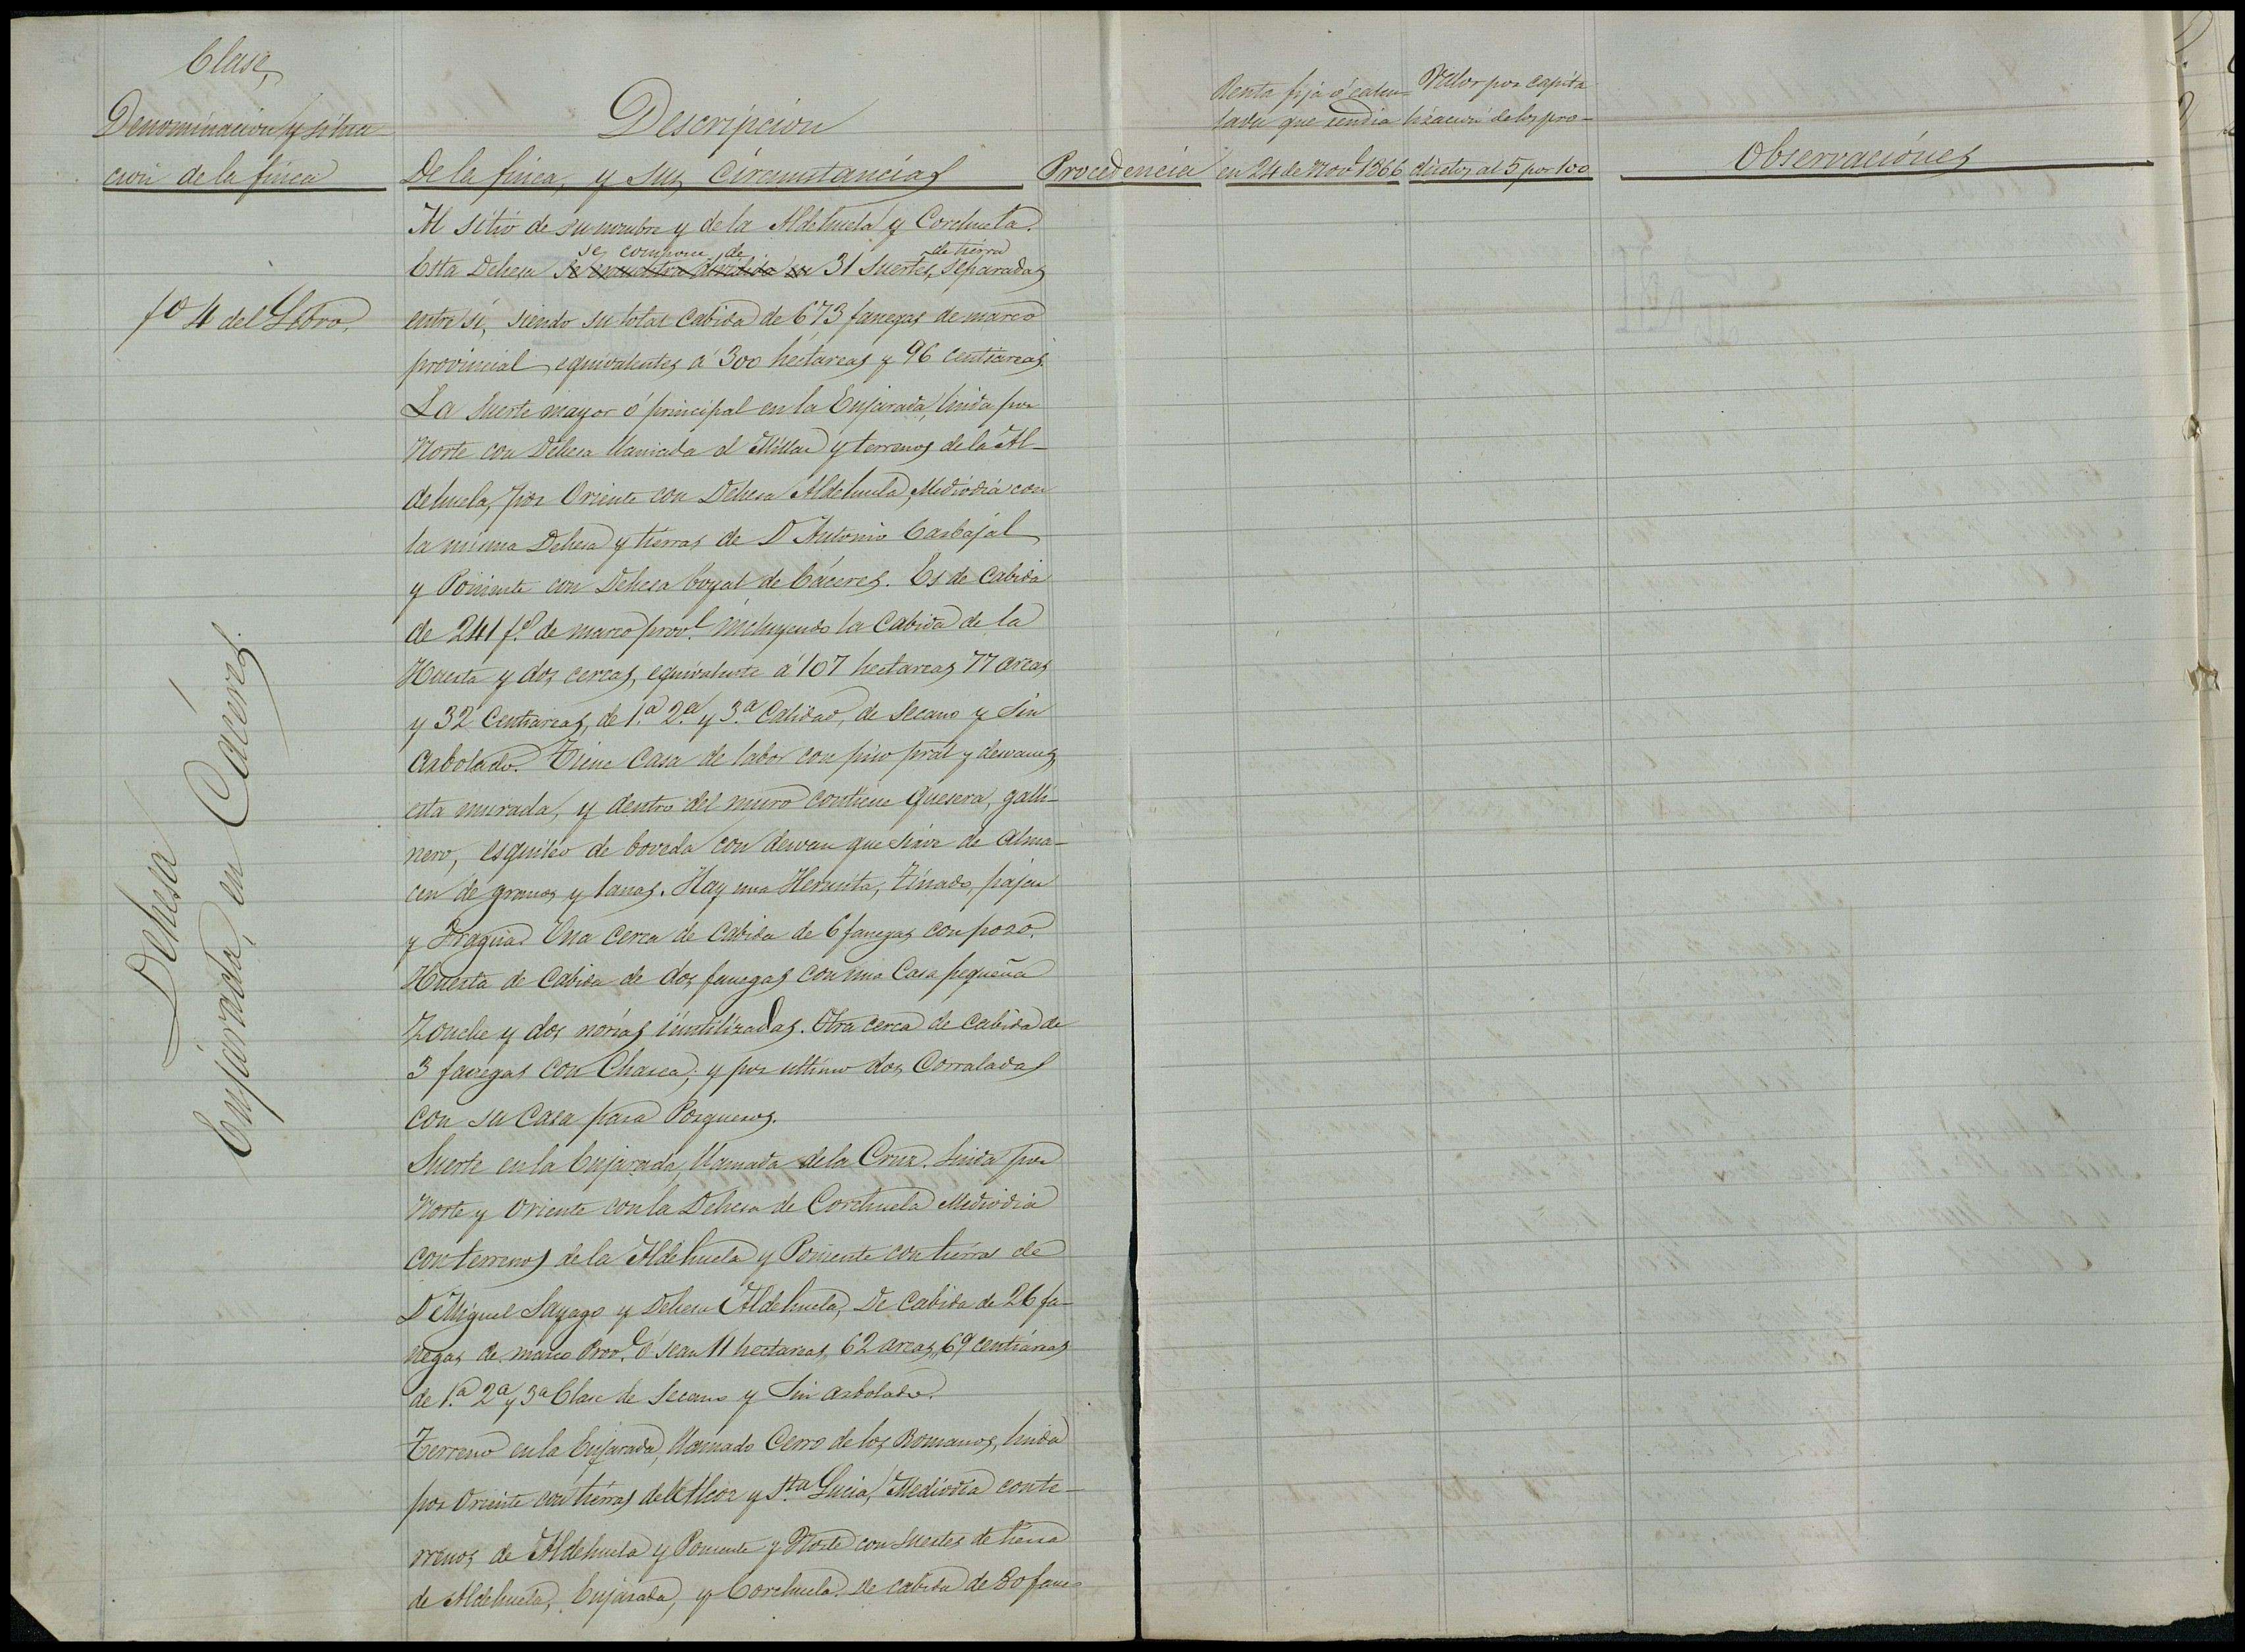 Clase,
Denominacion y situa
cion de la finca
Descripcion
De la finca, y sus circunstancias
Procedencia
Renta fija ó calcu-
lada que rendia
en 24 de Nov.e 1866
Valor por capita
lizacion de los pro-
ductos al 5 por 100
Observaciónes
fº 4 del Libro.
Dehesa
Enjarada, en Cáceres.
Al sitio de su nombre y de la Aldehuela y Corchuela.
Esta Dehesa se encuentra dividida en se compone de 31 suertes de tierra separadas
entre sí, siendo su total cabida de 673 fanegas de marco
provincial equivalentes á 300 hectareas y 96 centiareas.
La suerte mayor ó principal en la Enjarada, linda por
Norte con Dehesa llamada el Millar y terrenos de la Al-
dehuela, por Oriente con Dehesa Aldehuela, Mediodia con
la misma Dehesa y tierras de D Antonio Carbajal
y Poniente con Dehesa boyal de Cáceres. Es de cabida
de 241 f.s de marco prov.l incluyendo la cabida de la
Huerta y dos cercas, equivalente á 107 hectareas 77 areas
y 32 centiareas, de 1.a 2.a y 3.a Calidad, de secano y sin
arbolado. Tiene casa de labor con piso pral y desvanes,
esta murada, y dentro del muro contiene quesera, galli-
nero, esquileo de boveda con desvan que sirve de alma-
cen de granos y lanas. Hay una Hermita, tinado, pajar
y Fragua. Una cerca de cabida de 6 fanegas con pozo.
Huerta de cabida de dos fanegas con una Casa pequeña
Zonche y dos norias inutilizadas. Otra cerca de cabida de
3 fanegas con Charca, y por ultimo dos Corraladas
con su casa para Porqueros.
Suerte en la Enjarada, llamada de la Cruz. Linda por
Norte y Oriente con la Dehesa de Corchuela Mediodia
con terrenos de la Aldehuela y Poniente con tierras de
D Miguel Sayago y Dehesa Aldehuela, De cabida de 26 fa-
negas de marco Prov.l ó sean 11 hectareas, 62 areas, 69 centiareas
de 1.a 2a y 3a Clase de secano y sin arbolado.
Terreno en la Enjarada, llamado Cerro de los Romanos, linda
por Oriente con tierras del Alcor y S.ta Lucia, Mediodia con te-
rrenos de Aldehuela y Poniente y Norte con suertes de tierra
de Aldehuela, Enjarada, y Corchuela. De cabida de 80 fane-